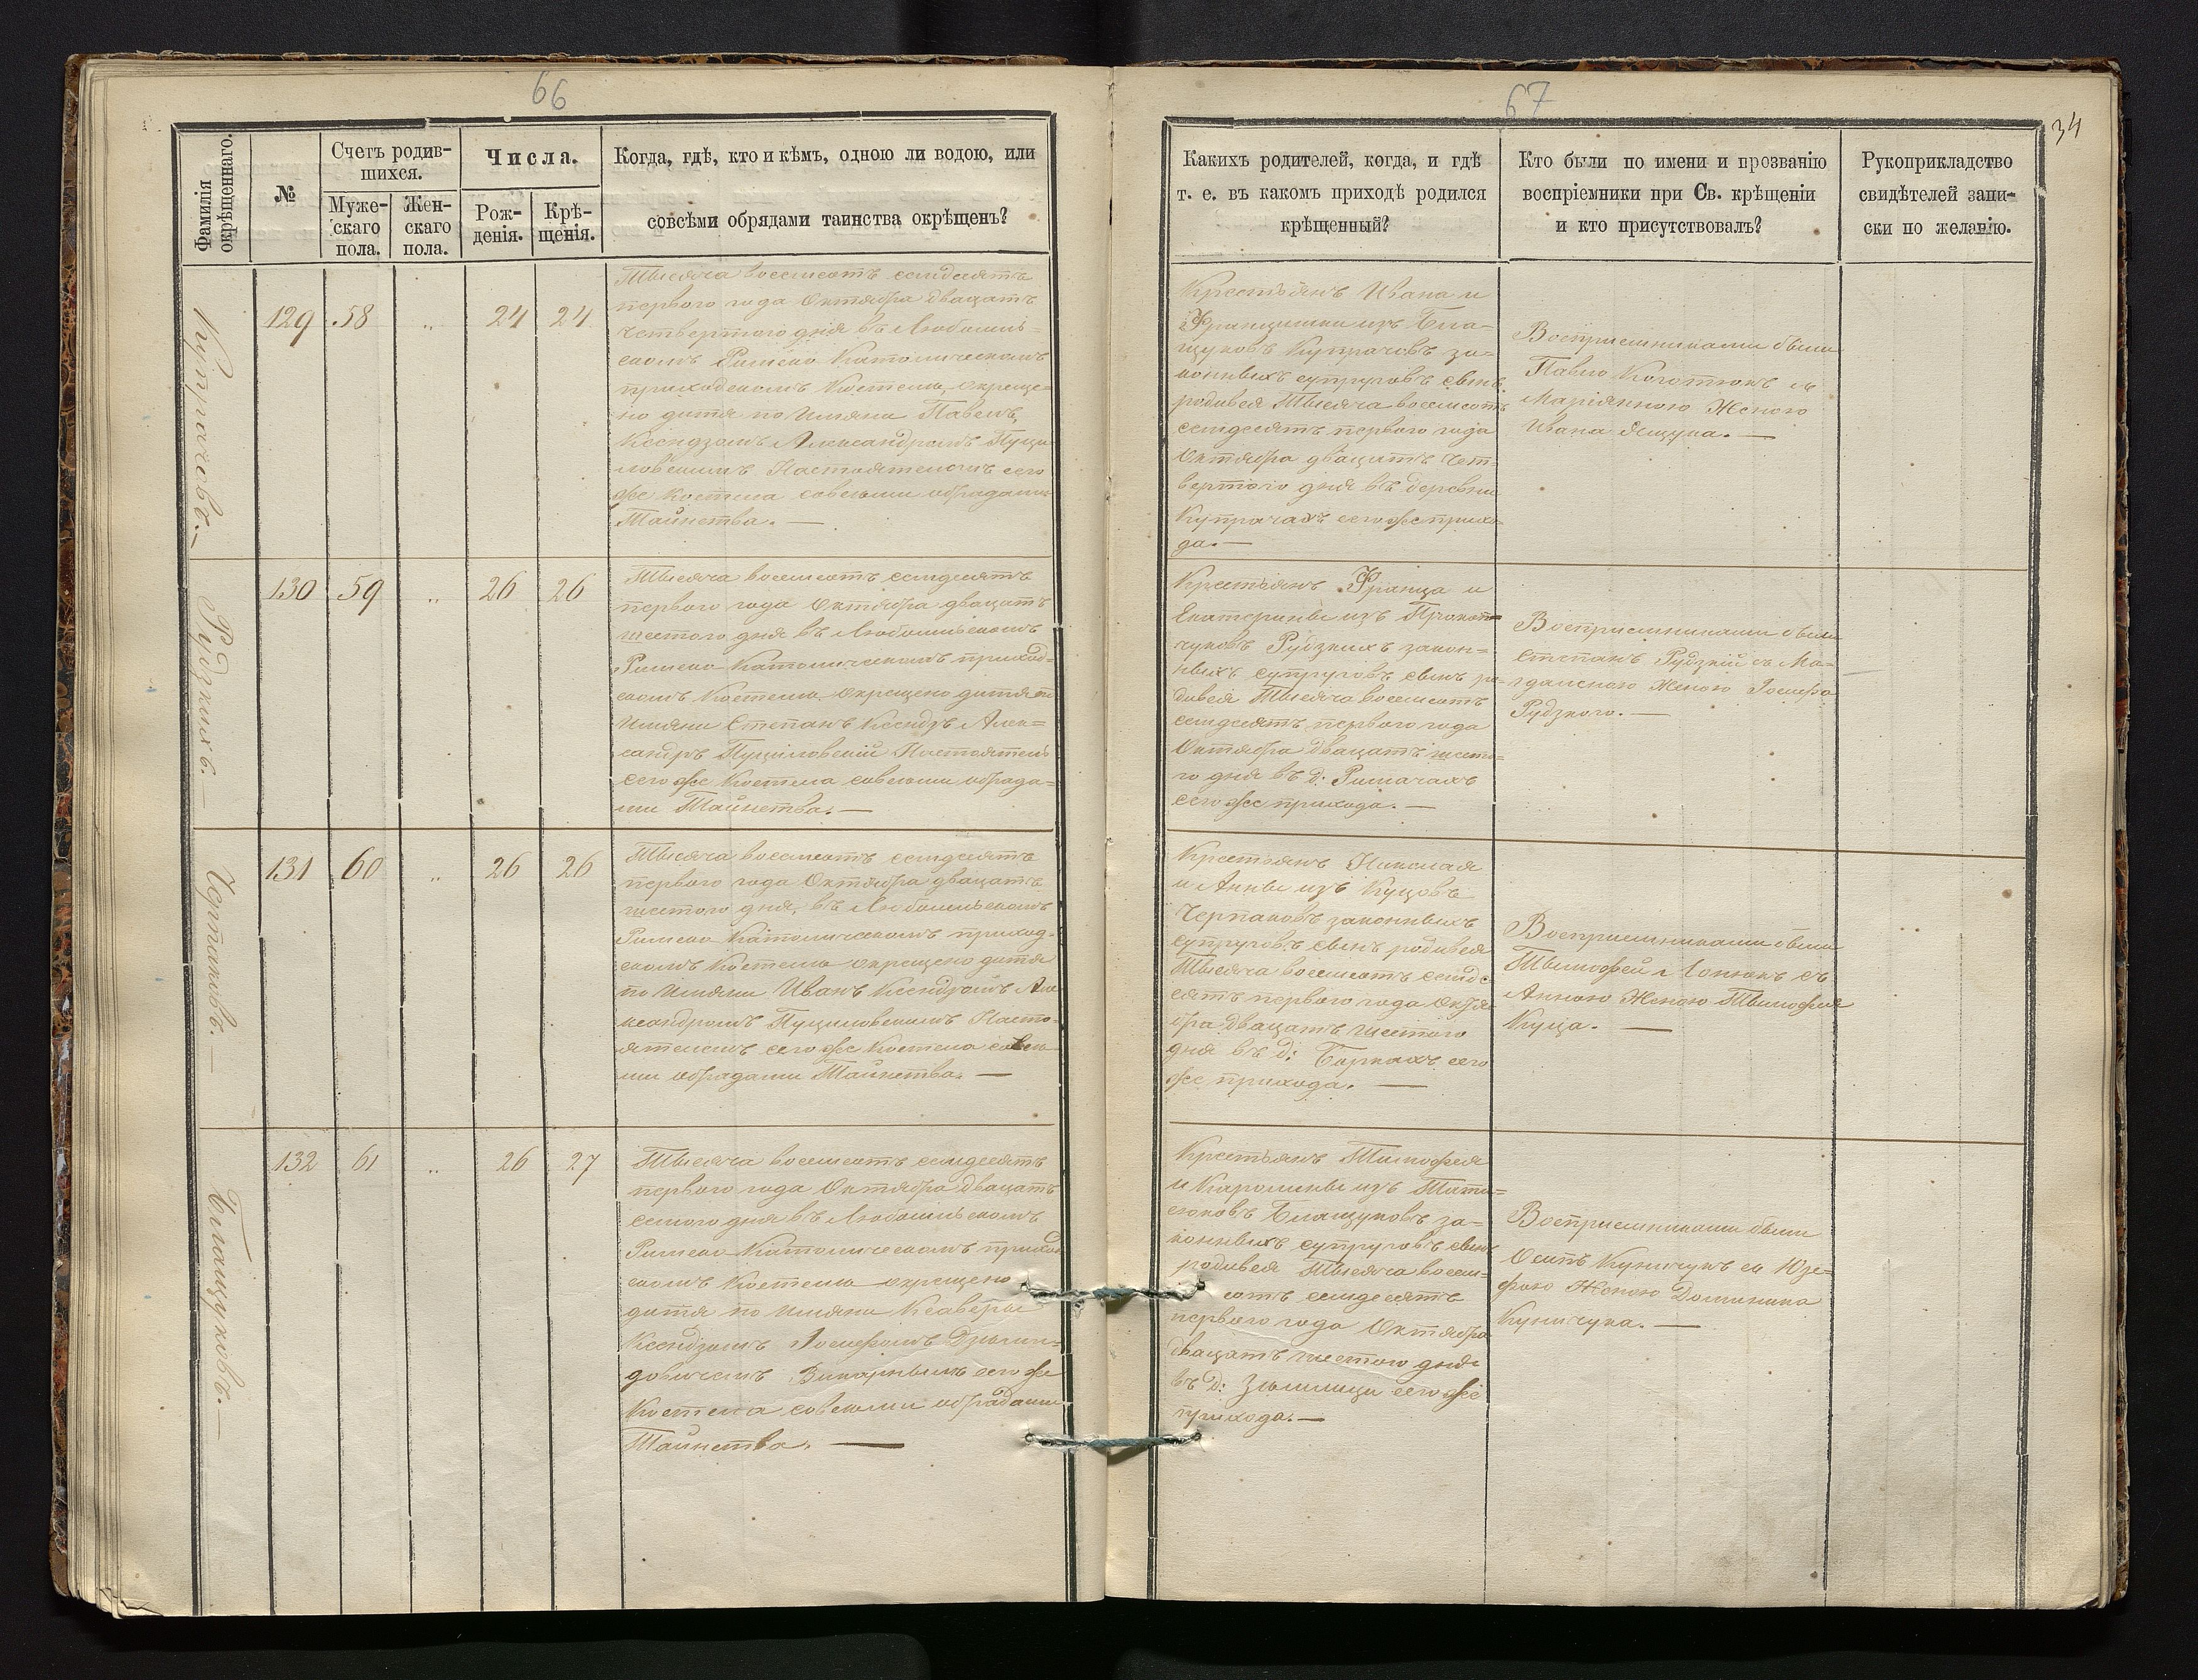 66
Фамилія окрѣщеннаго.
№
Счетъ родив-
шихся.
Муже-
скаго
пола.
Жен-
скаго
пола.
Числа.
Рож-
денія.
Крѣ-
щенія.
Когда, гдѣ, кто и кѣмъ, одною ли водою, или
совсѣми обрядами таинства окрѣщенъ?
Купрачовъ.—
129 58 „ 24 24
Тысяча восемсотъ семдесятъ
первого года Октября двацатъ
четвертого дня въ Любомль=
скомъ Римско Католическомъ
приходскомъ Костелѣ, окреще=
но дитя по имяни Павелъ,
Ксендзомъ Александромъ
Настоятелемъ сего
же Костела совсеми обрядами
Таинства. —
Рудзкихъ. —
130 59 „ 26 26
Тысяча восемсотъ семдесятъ
первого года Октября двацатъ
шестого дня въ Любомльскомъ
Римско Католическомъ приход=
скомъ Костелѣ окрещено дитя по
имяни Степанъ Ксендзъ Алек=
сандръ Настоятель
сего же Костела совсеми обряда=
ми Таинства. —
Черпаковъ. —
131 60 „ 26 26
Тысяча восемсотъ семдесятъ
первого года Октября двацатъ
шестого дня, въ Любомльскомъ
Римско Католическомъ приход=
скомъ Костелѣ окрещено дитя
по имяни Иванъ Ксендзомъ Але
ксандромъ Насто=
ятелемъ сего же Костела совсе
ми обрядами Таинства. —
Блащуковъ. —
132 61 „ 26 27
Тысяча восемсотъ семдесятъ
первого года Октября двацатъ
семого дня въ Любомльскомъ
Римско Католическомъ приход
скомъ Костелѣ окрещено
дитя по имяни Ксаверы
Ксендзомъ Іосифомъ
Викарнымъ сего же
Костела совсеми обрядами
Таинства. —
67
34
Какихъ родителей, когда, и гдѣ
т. е. въ какомъ приходѣ родился
крѣщенный?
Кто были по имени и прозванію
воспріемники при Св. крѣщеніи
и кто присутствовалъ?
Рукоприкладство
свидѣтелей запи-
ски по желанію.
Крестьянъ Ивана и
Францишки изъ Бла=
щуковъ Купрачовъ за=
конныхъ супруговъ сынъ
родився Тысяча восемсотъ
семдесятъ первого года
Октября двацатъ чет=
вертого дня въ деревни
Купрачахъ сего же прихо=
да. —
Восприемниками были
Павло съ
Маріянною Женою
Ивана Ящука. —
Крестьянъ Франца и
Екатерины изъ
Рудзкихъ закон=
ныхъ супруговъ сынъ ро=
дився Тысяча восемсотъ
семдесятъ первого года
Октября двацатъ шесто=
го дня въ д: Римачахъ
сего же прихода. —
Восприемниками были
Степанъ Рудзкій съ Ма=
гдаленою Женою Іосифа
Рудзкого. —
Крестьянъ Николая
и Анны изъ Куцовъ
Черпаковъ законныхъ
супруговъ сынъ родився
Тысяча восемсотъ семде
сятъ первого года Октя
бря двацатъ шестого
дня въ д: Боркахъ сего
же прихода. —
Восприемниками были
Тымофей съ
Анною Женою Тымофея
Куца. —
Крестьянъ Тимофея
и Каролины изъ
Блащуковъ за=
конныхъ супруговъ сынъ
родився Тысяча восем=
сотъ семдесятъ
первого года Октября
двацатъ шестого дня
въ д: сего же
прихода. —
Восприемниками были
Осипъ Куничукъ съ Юзе=
фою Женою Доминика
Куничука. —